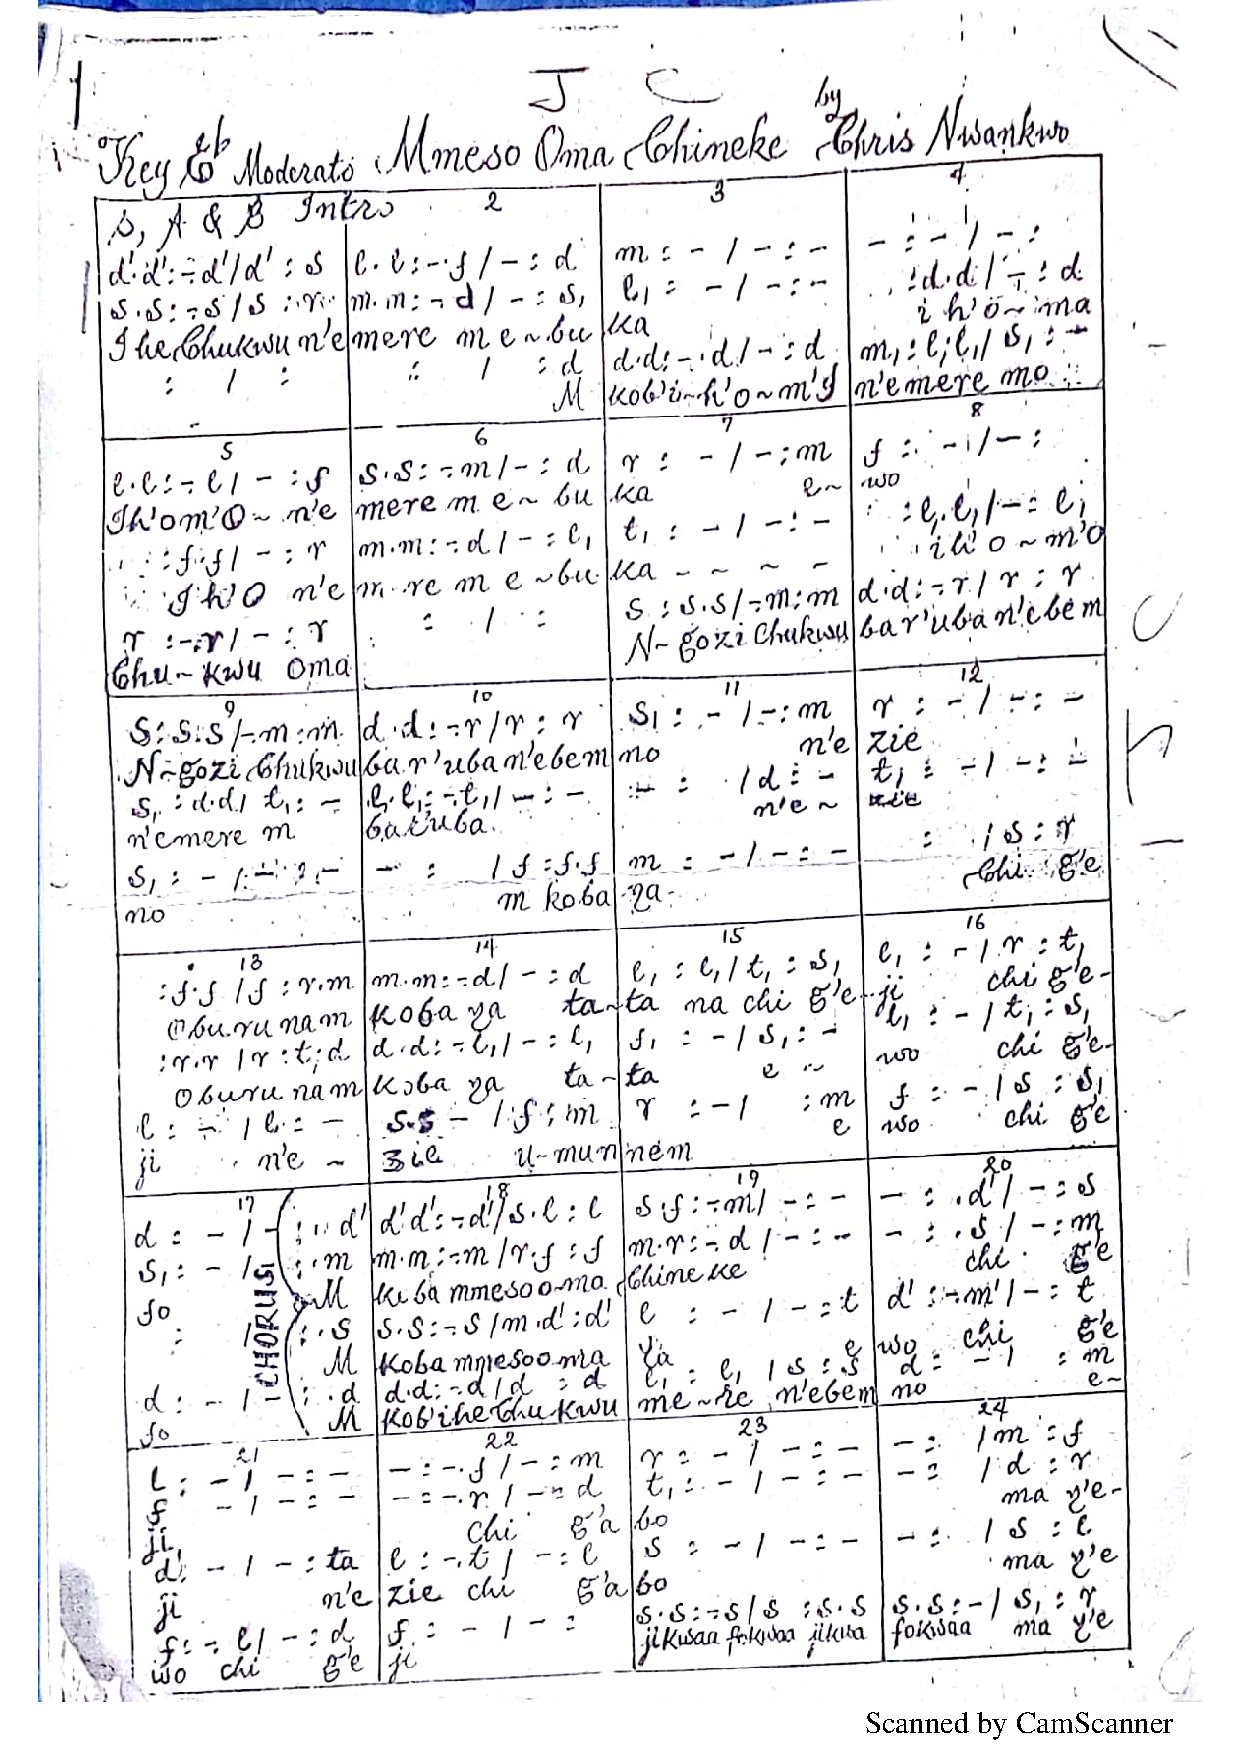 J C
Key Eb Moderato Mmeso Oma Chineke by Chris Nwankwo
S, A & B Intro
2
3
4
d'.d':-.d'/d' : s
l.l:-.f/-: d
m : - / - : -
- : - / - :
s.s:-.s/s : r
m.m:-.d/-: s,
l, : - / - : -
:d.d/-: d
Ihe Chukwu n'e
mere m e~bu
ka
i h'o~ma
: / :
: / : d
d.d:-.d/-: d
m, : l,.l,/ s, : -
M
kob'i~h'o~m'I
n'emere mo
5
6
7
8
l.l:-.l/-: f
s.s:-.m/-: d
r : - / - : m
f : - / - :
Ih'om'O~ n'e
mere m e~bu
ka e~
wo
:f.f/-: r
m.m:-.d/-: l,
t, : - / - : -
:l,.l,/-: l,
Ih'O n'e
m~re m e~bu
ka - ~ ~ ~
ih'o~m'O
r :-.r/-: r
: / :
s : s.s/-.m:m
d.d:-.r/ r : r
Chu~kwu Oma
N~gozi Chukwu
bar'uban'ebem
9
10
11
12
s : s.s/-.m:m
d.d:-.r/r : r
s, : - / - : m
r : - / - : -
N~gozi Chukwu
bar'uban'ebem
no n'e
zie
s, : d.d/ t, : -
l,.l,:-.t,/-: -
- : / d : -
t, : - / - : -
n'emere m
bar'uba
n'e~
zie
s, : - / - : -
- : / f : f.f
m : - / - : -
: / s : r
no
m koba
ya
Chi g'e
13
14
15
16
:f.f /f : r.m
m.m:-.d/-: d
l, : l,/ t, : s,
l, : - / r : t,
Oburu nam
koba ya ta~
ta na chi g'e-
ji chi g'e-
:r.r /r : t,.d
d.d:-.l,/-: l,
f, : - / s, : -
l, : - / t, : s,
Oburu nam
koba ya ta~
ta e~
wo chi g'e-
l : - / l : -
s.s - / f : m
r : - / : m
f : - / s : s,
ji n'e~
zie u-mun
nem e
wo chi g'e
17
18
19
20
CHORUS
d : - / - : . d'
d'.d':-.d'/s.l : l
s.f:-.m/-: -
- : . d'/ - : s
s, : - / - : . m
m.m:-.m/r.f : f
m.r:-.d/-: -
- : . s / - : m
fo M
koba mmesoo~ma
Chineke
chi g'e
: / : . s
s.s:-.s/m.d' : d'
l : - / - : t
d' :-.m'/-: t
M
koba mmesooma
ya e
wo chi g'e
d : - / - : . d
d.d:-.d/d : d
l, : l, / s : s
d : - / : m
fo M
kob'ihe Chukwu
me~re n'ebem
no e~
21
22
23
24
l : - / - : -
- : -.f/-: m
r : - / - : -
- : / m : f
f : - / - : -
- : -.r/-: d
t, : - / - : -
- : / d : r
ji
chi g'a
bo
ma y'e-
d' : - / - : ta
l : -.t/-: l
s : - / - : -
- : / s : l
ji n'e
zie chi g'a
bo
ma y'e
f : -.l/-: d
f : - / - :
s.s:-.s/s : s.s
s.s:-/ s, : r
wo chi g'e
ji
jikwaa fokwaa jikwa
fokwaa ma y'e
Scanned by CamScanner